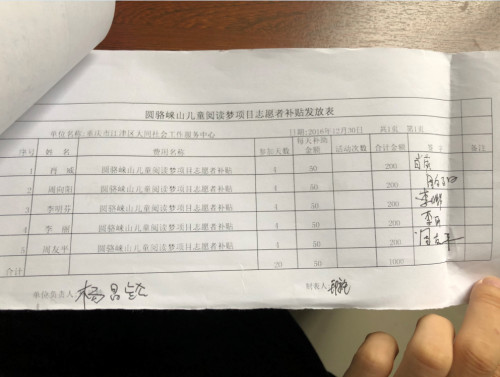 圆骆崃山儿童阅读梦项目志愿者补贴发放表
单位名称:重庆市江津区人同社会工作服务中心 日期:2016年12月30日 共1页 第1页
序号 姓名 费用名称 参加天数 每天补助金额 活动次数 合计金额 签字 备注
1 肖 圆骆崃山儿童阅读梦项目志愿者补贴 4 50 200
2 周向阳 圆骆崃山儿童阅读梦项目志愿者补贴 4 50 200
3 李明芬 圆骆崃山儿童阅读梦项目志愿者补贴 4 50 200
4 李 丽 圆骆崃山儿童阅读梦项目志愿者补贴 4 50 200
5 周友平 圆骆崃山儿童阅读梦项目志愿者补贴 4 50 200 周友平
合计 20 50 1000
单位负责人: 制表人: